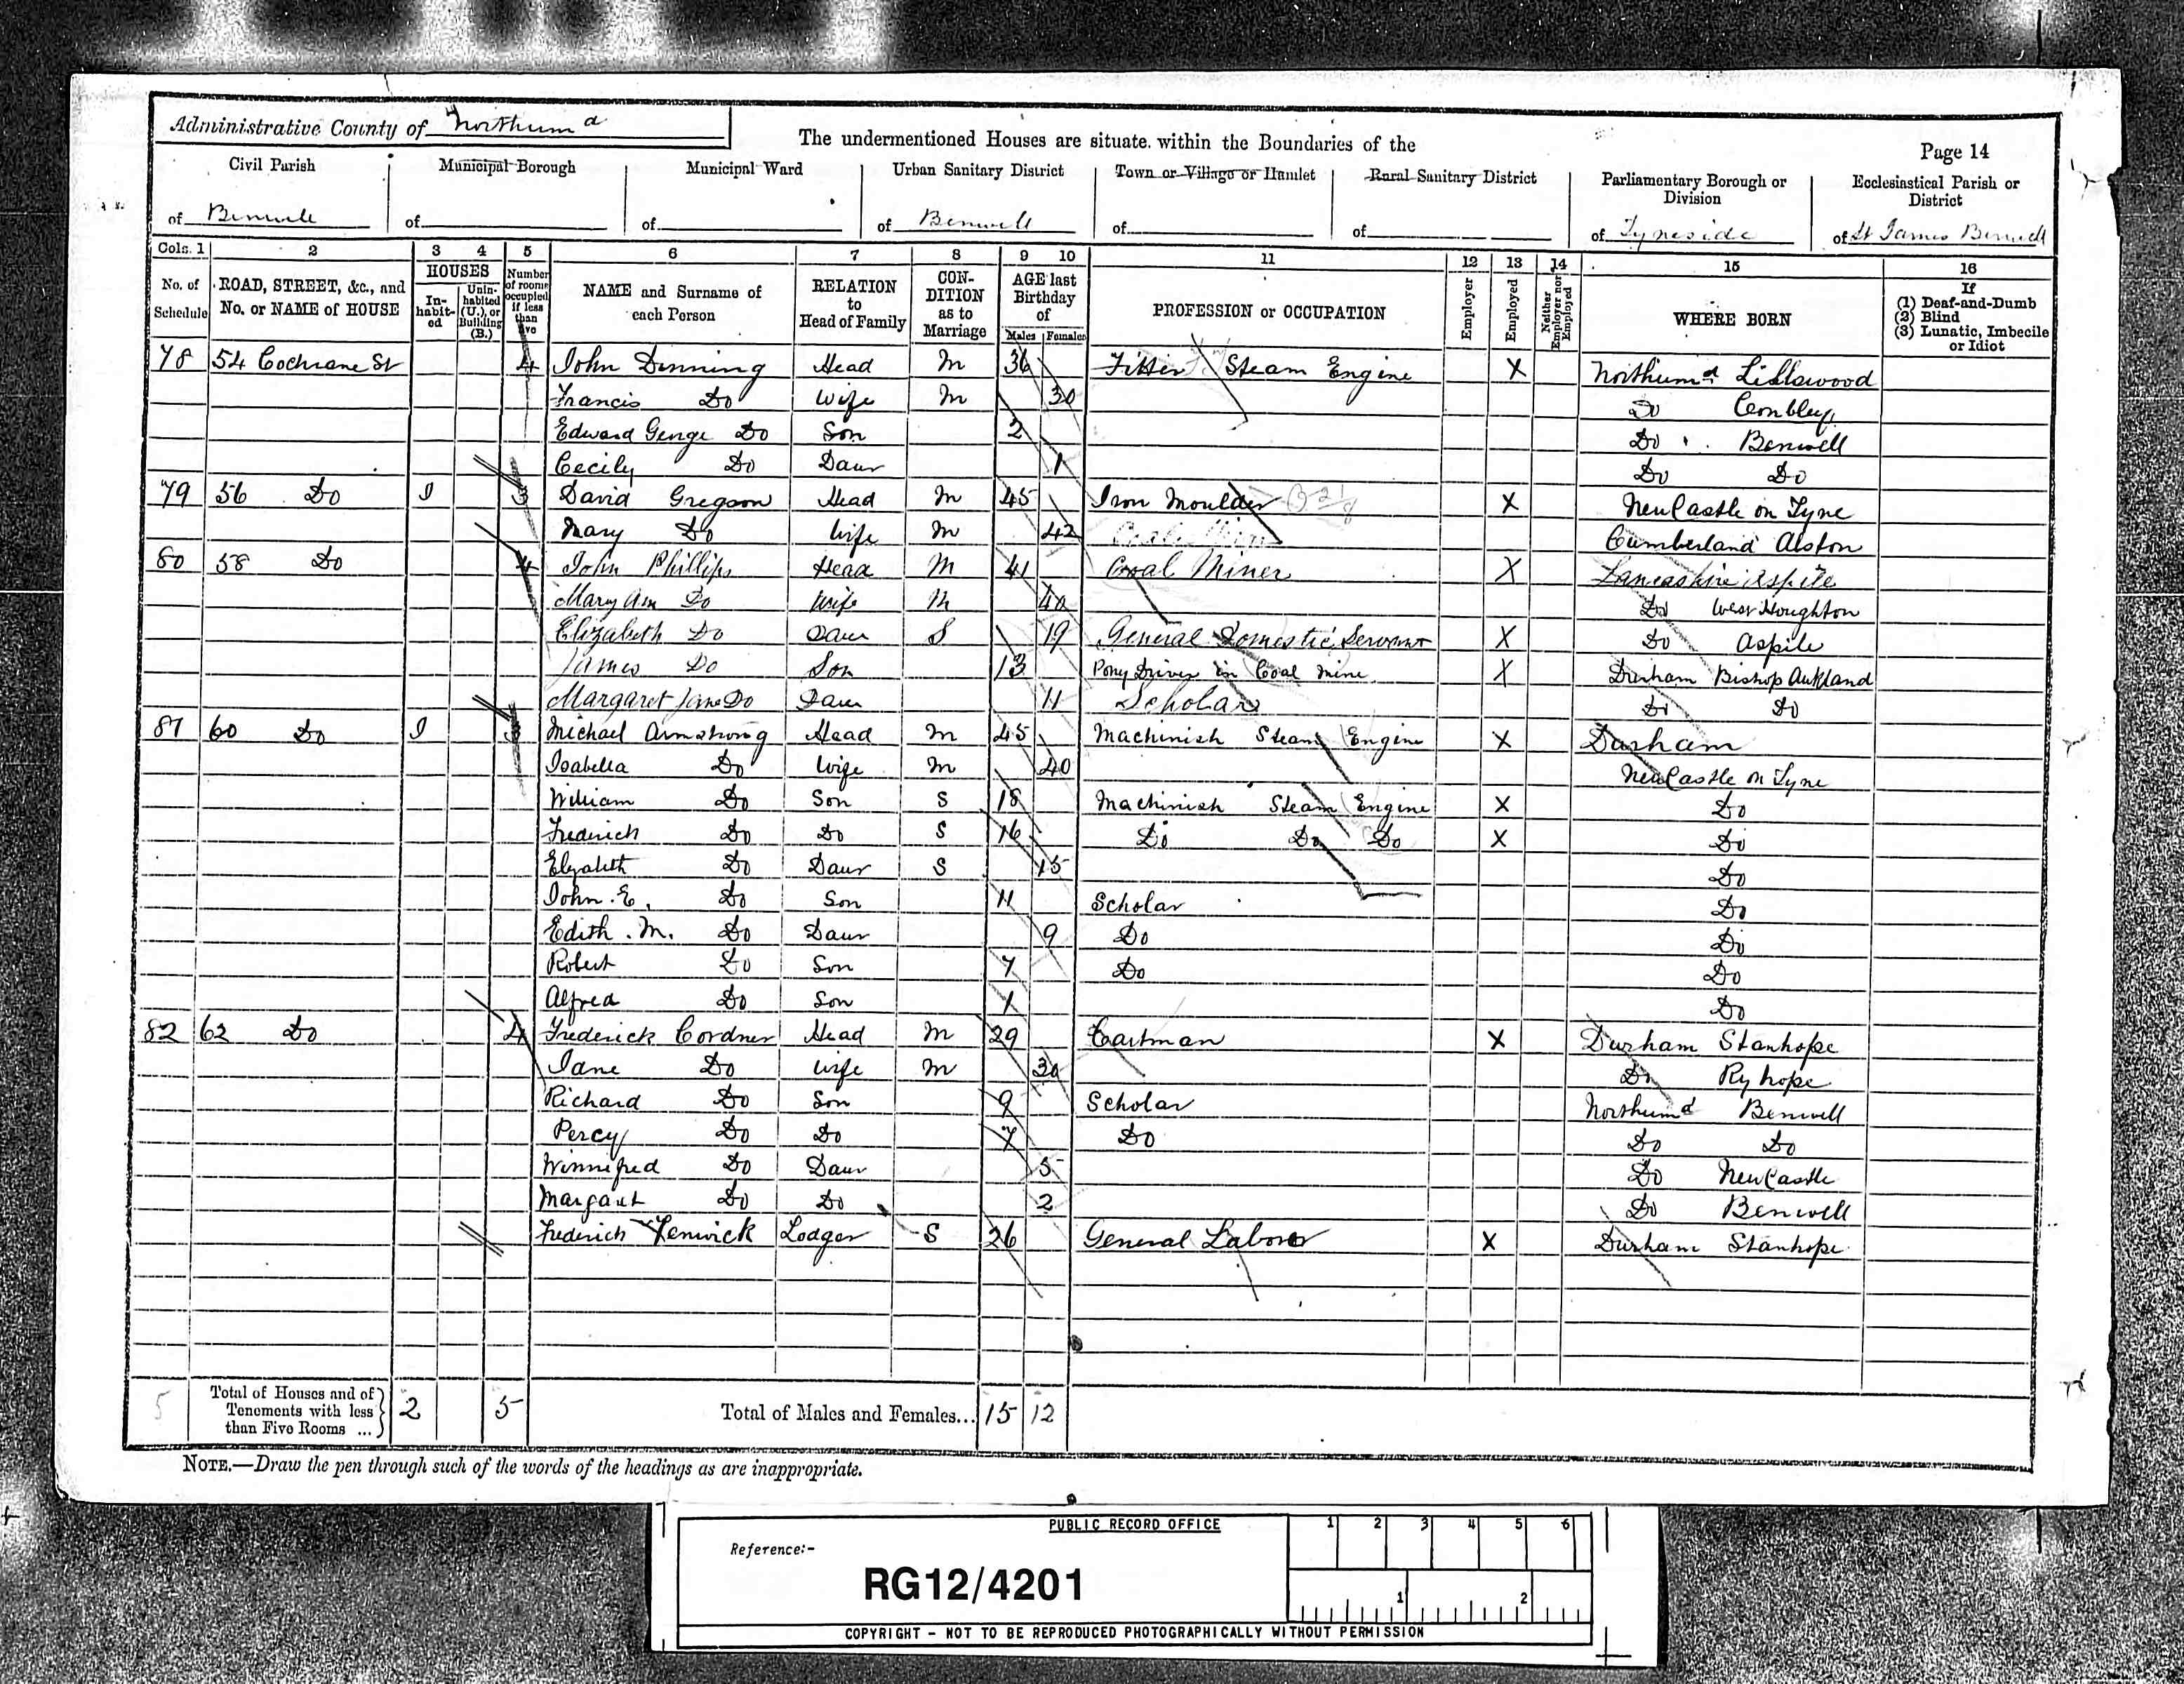 Administrative County of Northum d
The undermentioned Houses are situate within the Boundaries of the
Page 14
Civil Parish Municipal Borough Municipal Ward Urban Sanitary District Town or Village or Hamlet Rural Sanitary District Parliamentary Borough or Division Ecclesiastical Parish or District
of Benwell of of of Benwell of of of Tyneside of St James Benwell
Cols. 1 2 3 4 5 6 7 8 9 10 11 12 13 14 15 16
No. of Schedule ROAD, STREET, &c., and No. or NAME of HOUSE HOUSES In-habit-ed Unin-habited (U.), or Building (B.) Number of rooms occupied if less than five NAME and Surname of each Person RELATION to Head of Family CON-DITION as to Marriage AGE last Birthday of Males Females PROFESSION or OCCUPATION Employer Employed Neither Employer nor Employed WHERE BORN If (1) Deaf-and-Dumb (2) Blind (3) Lunatic, Imbecile or Idiot
78 54 Cochrane St 4 John Dinning Head M 36 Fitter Steam Engine X Northumd
Francis Do Wife M 30 Do
Edward George Do Son 2 Do Benwell
Cecily Do Daur 1 Do Do
79 56 Do I 3 David Gregson Head M 45 Iron Moulder X NewCastle on Tyne
Mary Do Wife M 42 Cumberland Alston
80 58 Do 4 John Phillips Head M 41 Coal Miner X Lancashire Aspile
Mary Ann Do Wife M 40 Do West Houghton
Elizabeth Do Daur S 19 General Domestic Servant X Do Aspile
James Do Son 13 Pony Driver in Coal Mine X Durham Bishop Aukland
Margaret Jane Do Daur 11 Scholar Do Do
81 60 Do I 3 Michael Armstrong Head M 45 Machinish Steam Engine X Durham
Isabella Do Wife M 40 NewCastle on Tyne
William Do Son S 18 Machinish Steam Engine X Do
Frederich Do Do S 16 Do Do Do X Do
Elizabeth Do Daur S 15 Do
John. E. Do Son 11 Scholar Do
Edith. M. Do Daur 9 Do Do
Robert Do Son 7 Do Do
Alfred Do Son 1 Do
82 62 Do 4 Frederick Cordner Head M 29 Cartman X Durham Stanhope
Jane Do Wife M 30 Do Ryhope
Richard Do Son 9 Scholar Northumd Benwell
Percy Do Do 7 Do Do Do
Winnifred Do Daur 5 Do NewCastle
Margaret Do Do 2 Do Benwell
Frederich Fenwick Lodger S 26 General Laborer X Durham Stanhope
5 Total of Houses and of Tenements with less than Five Rooms ... 2 5 Total of Males and Females... 15 12
NOTE.—Draw the pen through such of the words of the headings as are inappropriate.
PUBLIC RECORD OFFICE 1 2 3 4 5 6
Reference:-
RG12/4201
1 2
COPYRIGHT - NOT TO BE REPRODUCED PHOTOGRAPHICALLY WITHOUT PERMISSION